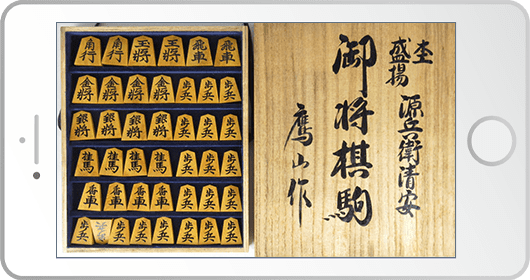 角行 角行 王将 王将 飛車 飛車
金将 金将 金将 金将 歩兵 歩兵 歩兵
銀将 銀将 銀将 銀将 歩兵 歩兵 歩兵
桂馬 桂馬 桂馬 桂馬 歩兵 歩兵 歩兵
香車 香車 香車 香車 歩兵 歩兵 歩兵
歩兵 歩兵 歩兵 歩兵 歩兵 歩兵
杢
盛揚
源兵衛清安
御将棋駒
鷹山作